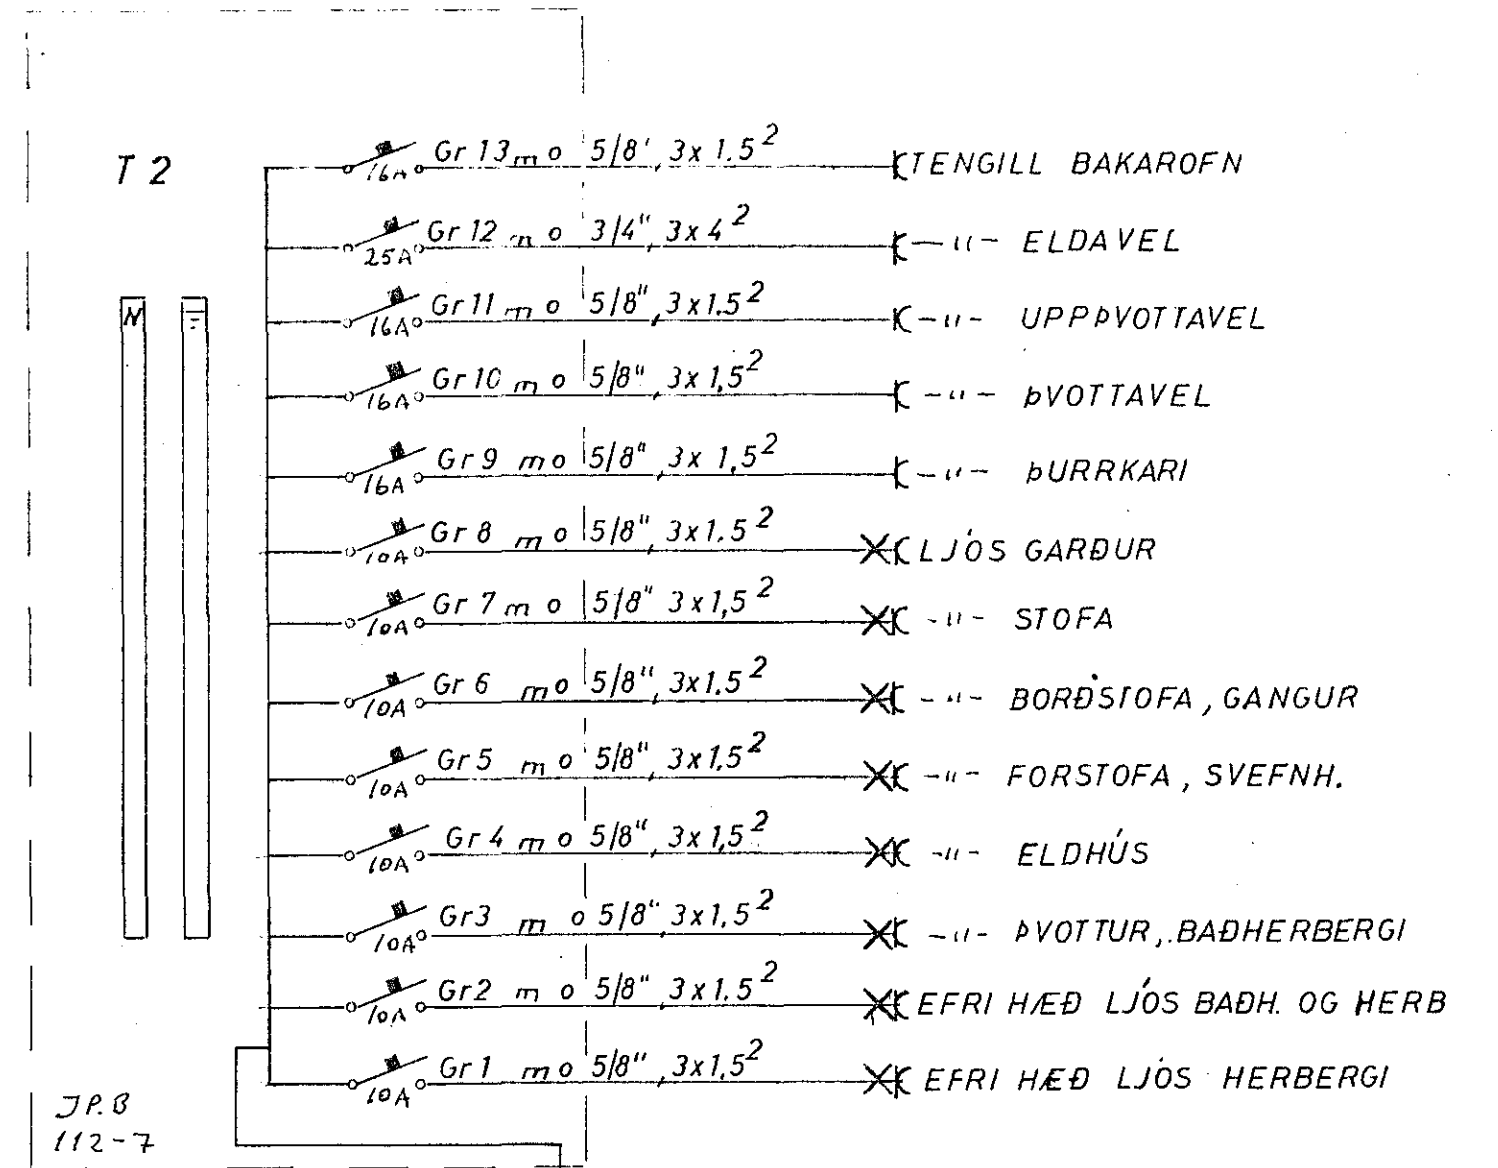 T 2
Gr 13 m o 5/8', 3x1.5² TENGILL BAKAROFN
16A
Gr 12 m o 3/4", 3x4² —"- ELDAVEL
25A
Gr 11 m o 5/8", 3x1.5² -"- UPPÞVOTTAVEL
16A
N
Gr 10 m o 5/8", 3x1,5² -"- ÞVOTTAVEL
16A
Gr 9 m o 5/8", 3x1,5² -"- ÞURRKARI
16A
Gr 8 m o 5/8", 3x1.5² LJÓS GARÐUR
10A
Gr 7 m o 5/8" 3x1,5² -"- STOFA
10A
Gr 6 m o 5/8", 3x1.5² -"- BORÐSTOFA, GANGUR
10A
Gr 5 m o 5/8", 3x1,5² -"- FORSTOFA, SVEFNH.
10A
Gr 4 m o 5/8", 3x1,5² -"- ELDHÚS
10A
Gr3 m o 5/8", 3x1,5² -"- ÞVOTTUR, BAÐHERBERGI
10A
Gr2 m o 5/8", 3x1.5² EFRI HÆÐ LJÓS BAÐH. OG HERB
10A
Gr 1 m o 5/8", 3x1,5² EFRI HÆÐ LJÓS HERBERGI
10A
JP.B
112-7